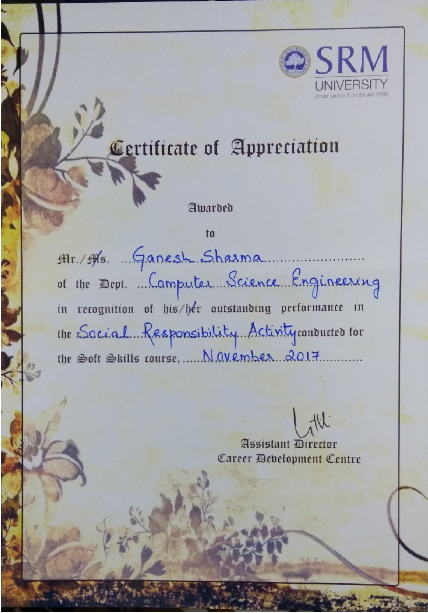 SRM
UNIVERSITY
Certificate of Appreciation
Awarded
to
Mr./Ms. ... Ganesh Sharma ........................
of the Dept. ... Computer Science Engineering
in recognition of his/her outstanding performance in
the Social Responsibility Activity conducted for
the Soft Skills course, ..... November 2017 ............
Assistant Director
Career Development Centre